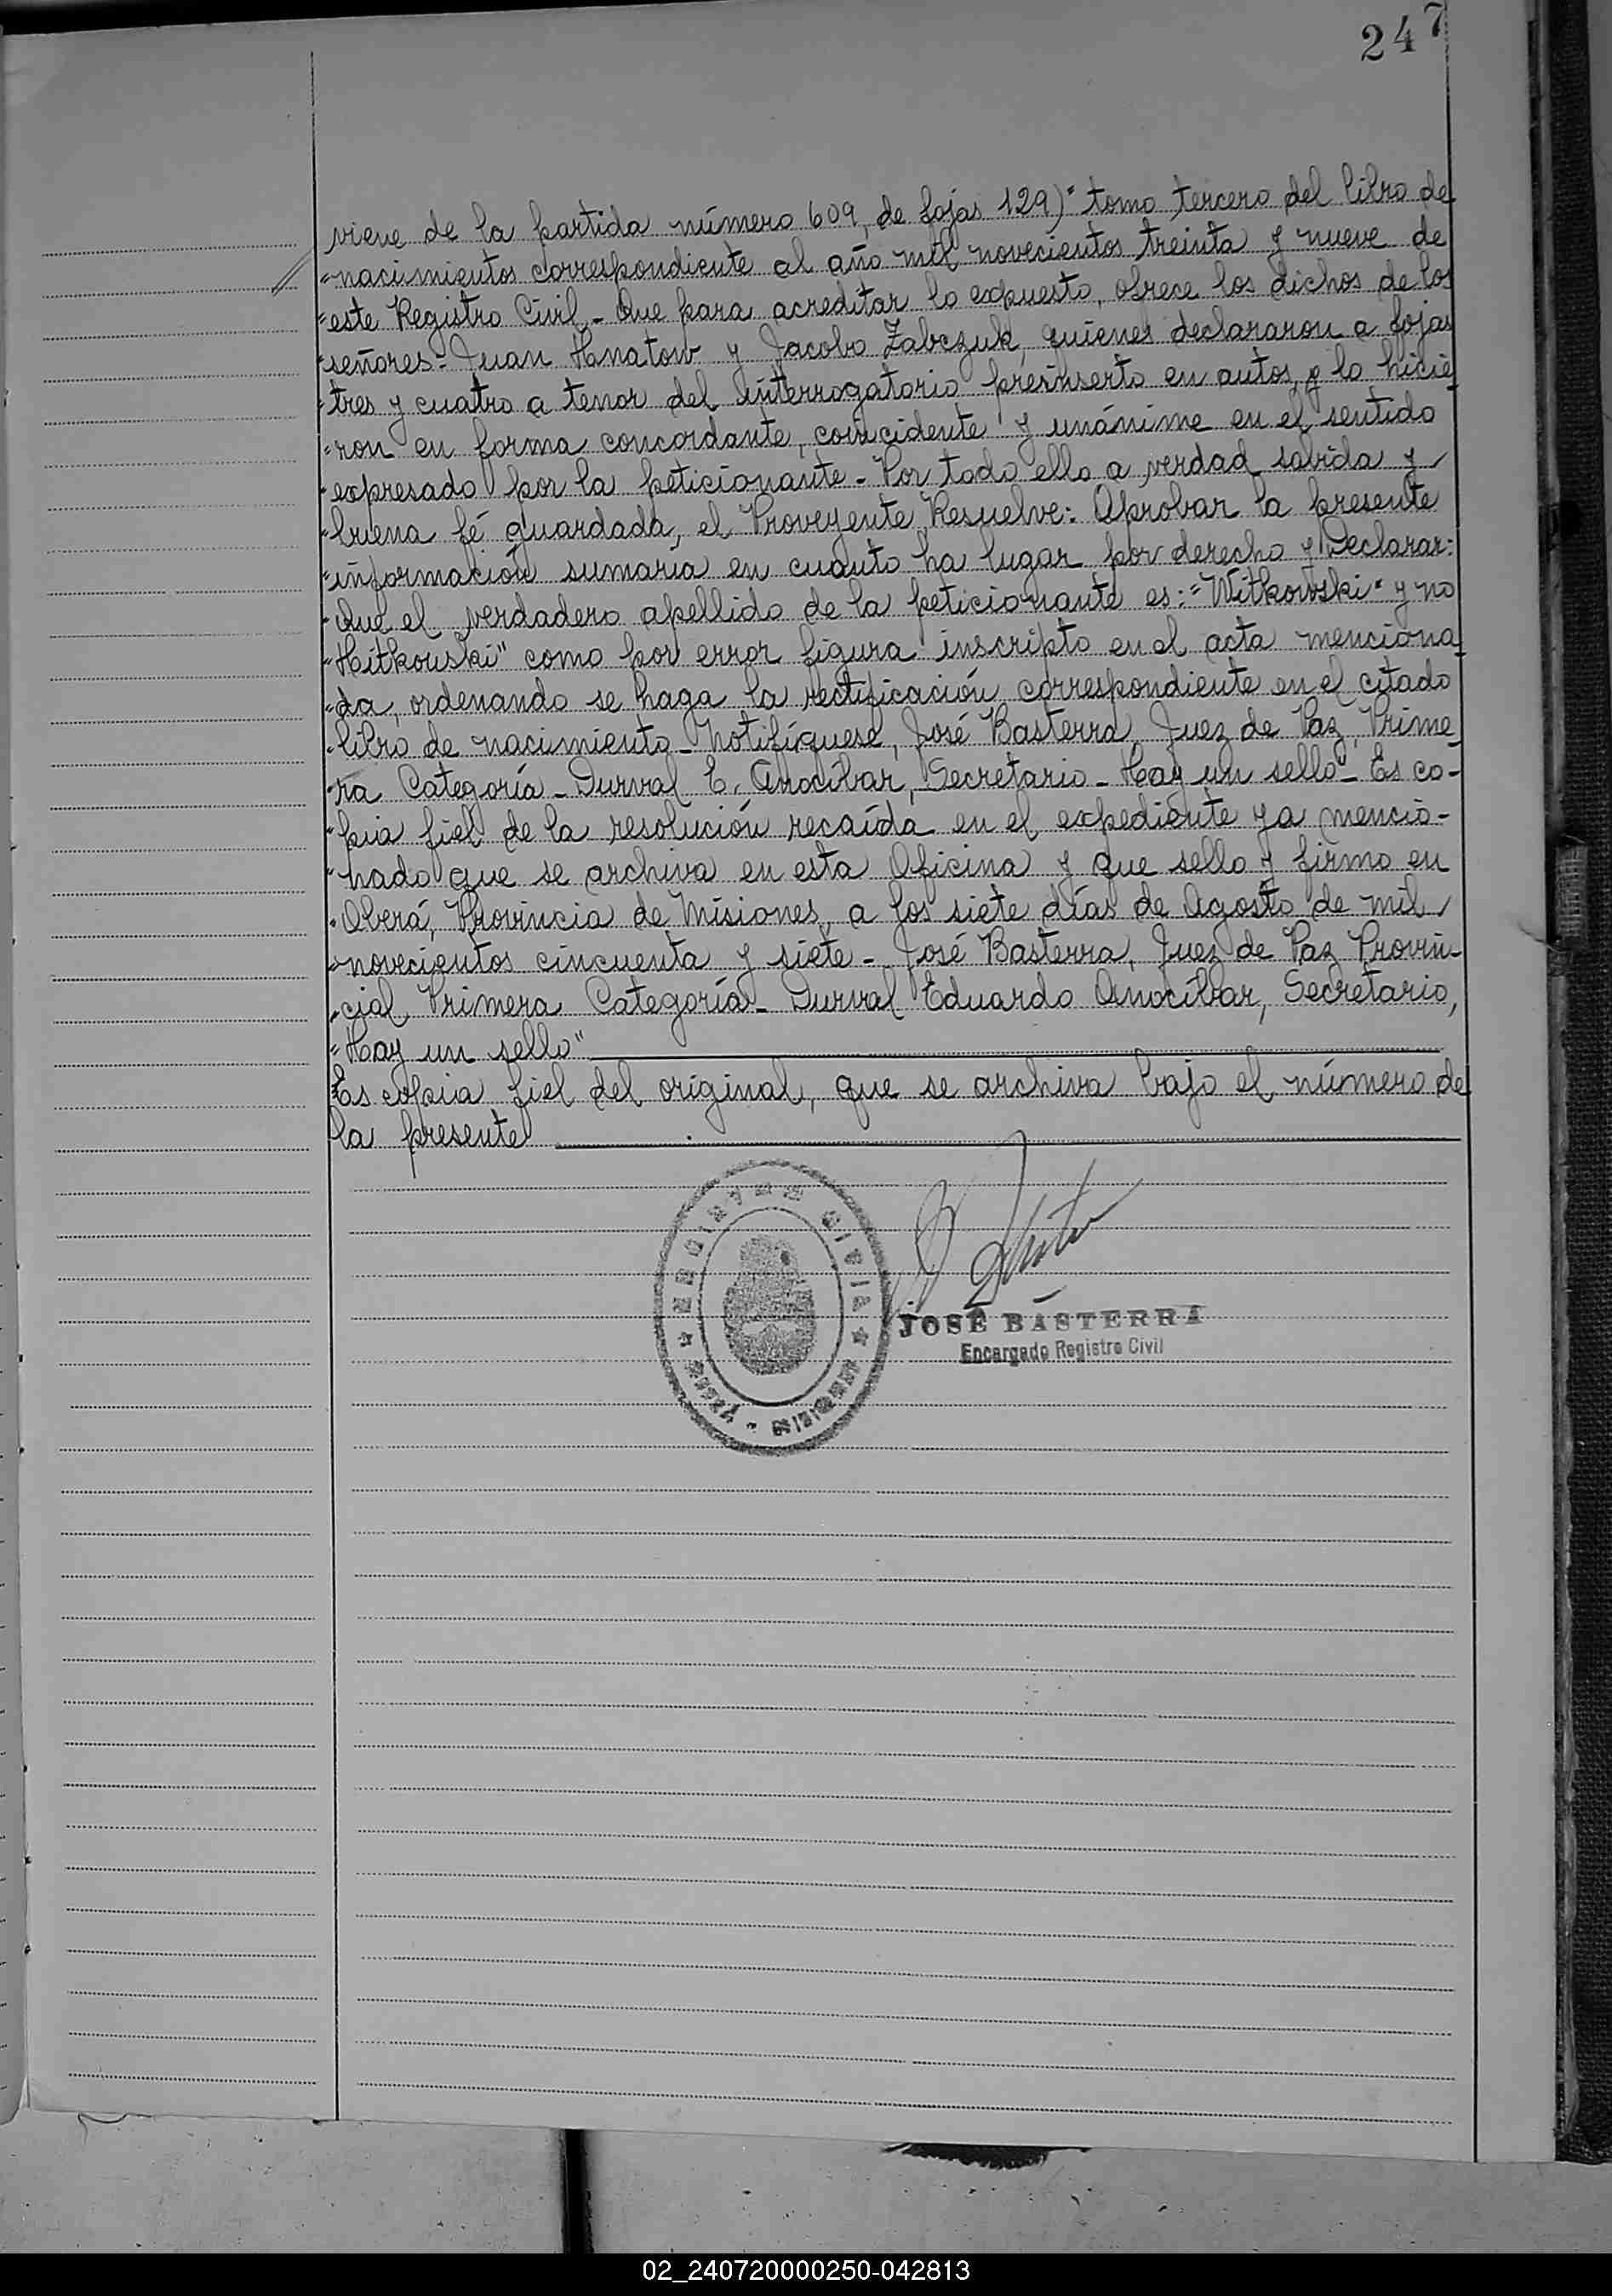 247
viene de la partida número 609, de fojas 129)" tomo tercero del libro de
"nacimientos correspondiente al año mil novecientos treinta y nueve de
"este Registro Civil.- Que para acreditar lo expuesto, ofrece los dichos de los
"señores- Juan Hnatow y Jacobo Zabczuk, quienes declararon a fojas
"tres y cuatro a tenor del interrogatorio preinserto en autos, y lo hicie-
"ron en forma concordante, coincidente y unánime en el sentido
"expresado por la peticionante- Por todo ello a verdad sabida y
"buena fé guardada, el Proveyente Resuelve: Aprobar la presente
"información sumaria en cuanto ha lugar por derecho y Declarar:
"Que el verdadero apellido de la peticionante es: "Witkowski" y no
"Hitkouski" como por error figura inscripto en el acta menciona-
"da, ordenando se haga la rectificación correspondiente en el citado
"libro de nacimiento- Notifíquese, José Basterra, Juez de Paz, Prime-
"ra Categoría- Durval E. Anocíbar, Secretario- Hay un sello- Es co-
"pia fiel de la resolución recaída en el expediente ya mencio-
"nado que se archiva en esta Oficina y que sello y firmo en
"Oberá, Provincia de Misiones, a los siete días de Agosto de mil
"novecientos cincuenta y siete- José Basterra, Juez de Paz Provin-
"cial Primera Categoría- Durval Eduardo Anocíbar, Secretario,
"Hay un sello"
Es copia fiel del original, que se archiva bajo el número de
la presente
REGISTRO CIVIL
OBERÁ - MISIONES
JOSÉ BASTERRA
Encargado Registro Civil
02_240720000250-042813